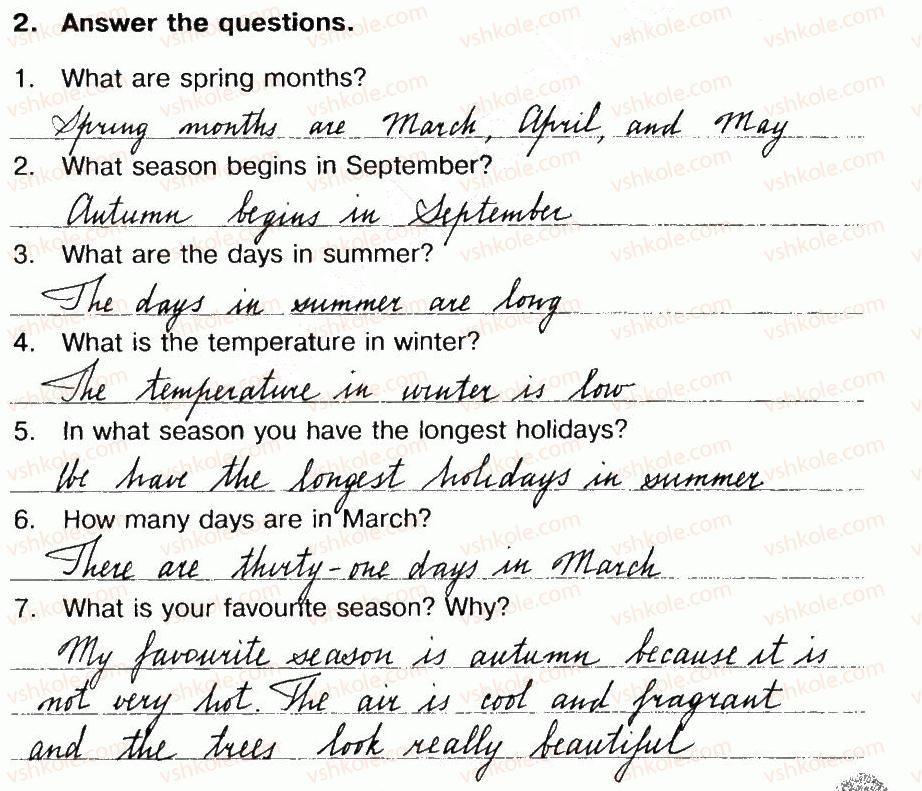 2. Answer the questions.
1. What are spring months?
Spring months are March, April, and May
2. What season begins in September?
Autumn begins in September
3. What are the days in summer?
The days in summer are long
4. What is the temperature in winter?
The temperature in winter is low
5. In what season you have the longest holidays?
We have the longest holidays in summer
6. How many days are in March?
There are thirty-one days in March
7. What is your favourite season? Why?
My favourite season is autumn because it is
not very hot. The air is cool and fragrant
and the trees look really beautiful